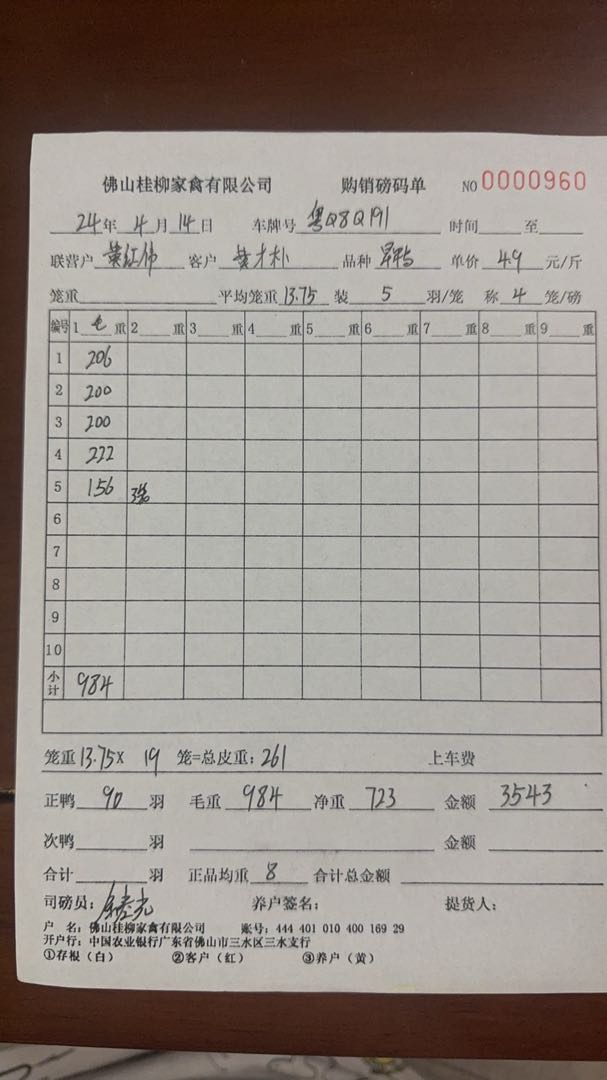 佛山桂柳家禽有限公司 购销磅码单 NO 0000960
24年 4月 14日 车牌号 粤Q8Q191 时间 至
联营户 黄红伟 客户 黄才朴 品种 单价 4.9 元/斤
笼重 平均笼重 13.75 装 5 羽/笼 称 4 笼/磅
编号 1 毛 重 2 重 3 重 4 重 5 重 6 重 7 重 8 重 9 重
1 206
2 200
3 200
4 222
5 156 3笼
6
7
8
9
10
小计 984
笼重 13.75X 19 笼=总皮重: 261 上车费
正鸭 90 羽 毛重 984 净重 723 金额 3543
次鸭 羽 金额
合计 羽 正品均重 8 合计总金额
司磅员: 养户签名: 提货人:
户 名: 佛山桂柳家禽有限公司 账号: 444 401 010 400 169 29
开户行: 中国农业银行广东省佛山市三水区三水支行
①存根（白） ②客户（红） ③养户（黄）